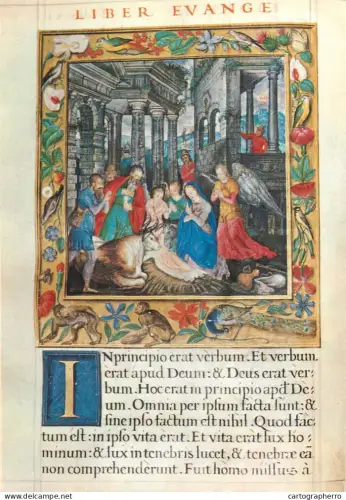 LIBER EVANGE
IN principio erat verbum. Et verbum
erat apud Deum: & Deus erat ver-
bum. Hoc erat in principio apd De-
um. Omnia per ipsum facta sunt: &
sine ipso factum est nihil. Quod fac-
tum est: in ipso vita erat. Et vita erat lux ho-
minum: & lux in tenebris lucet, & tenebræ eã
non comprehenderunt. Fuit homo missus à
www.delcampe.net
cartographero